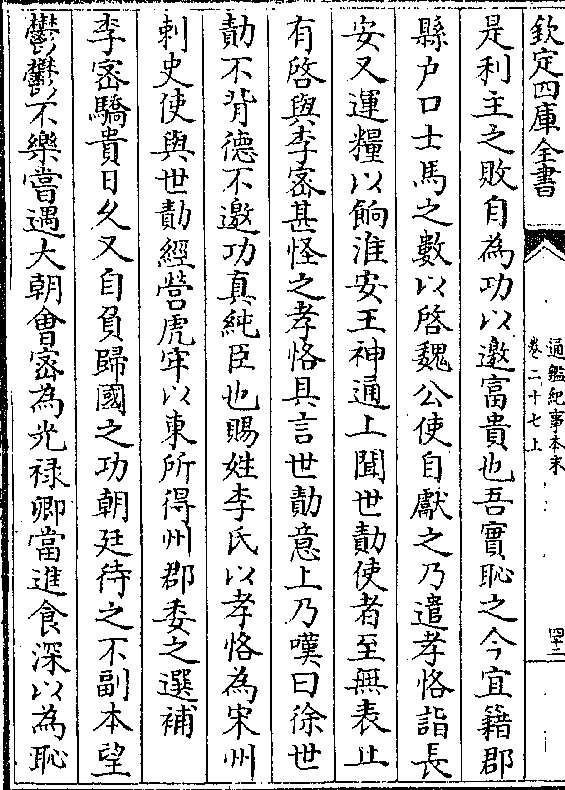 欽定四庫全書
通鑑紀事本末
卷二十七上
四十二
是利主之敗自為功以邀富貴也吾實恥之今宜籍郡
縣户口士馬之數以啓魏公使自獻之乃遣孝恪詣長
安又運糧以餉淮安王神通上聞世勣使者至無表止
有啓與李宻甚怪之孝恪具言世勣意上乃嘆曰徐世
勣不背德不邀功真純臣也賜姓李氏以孝恪為宋州
刺史使與世勣經營虎牢以東所得州郡委之選補
李宻驕貴日久又自負歸國之功朝廷待之不副本望
鬱鬱不樂嘗遇大朝會宻為光禄卿當進食深以為恥